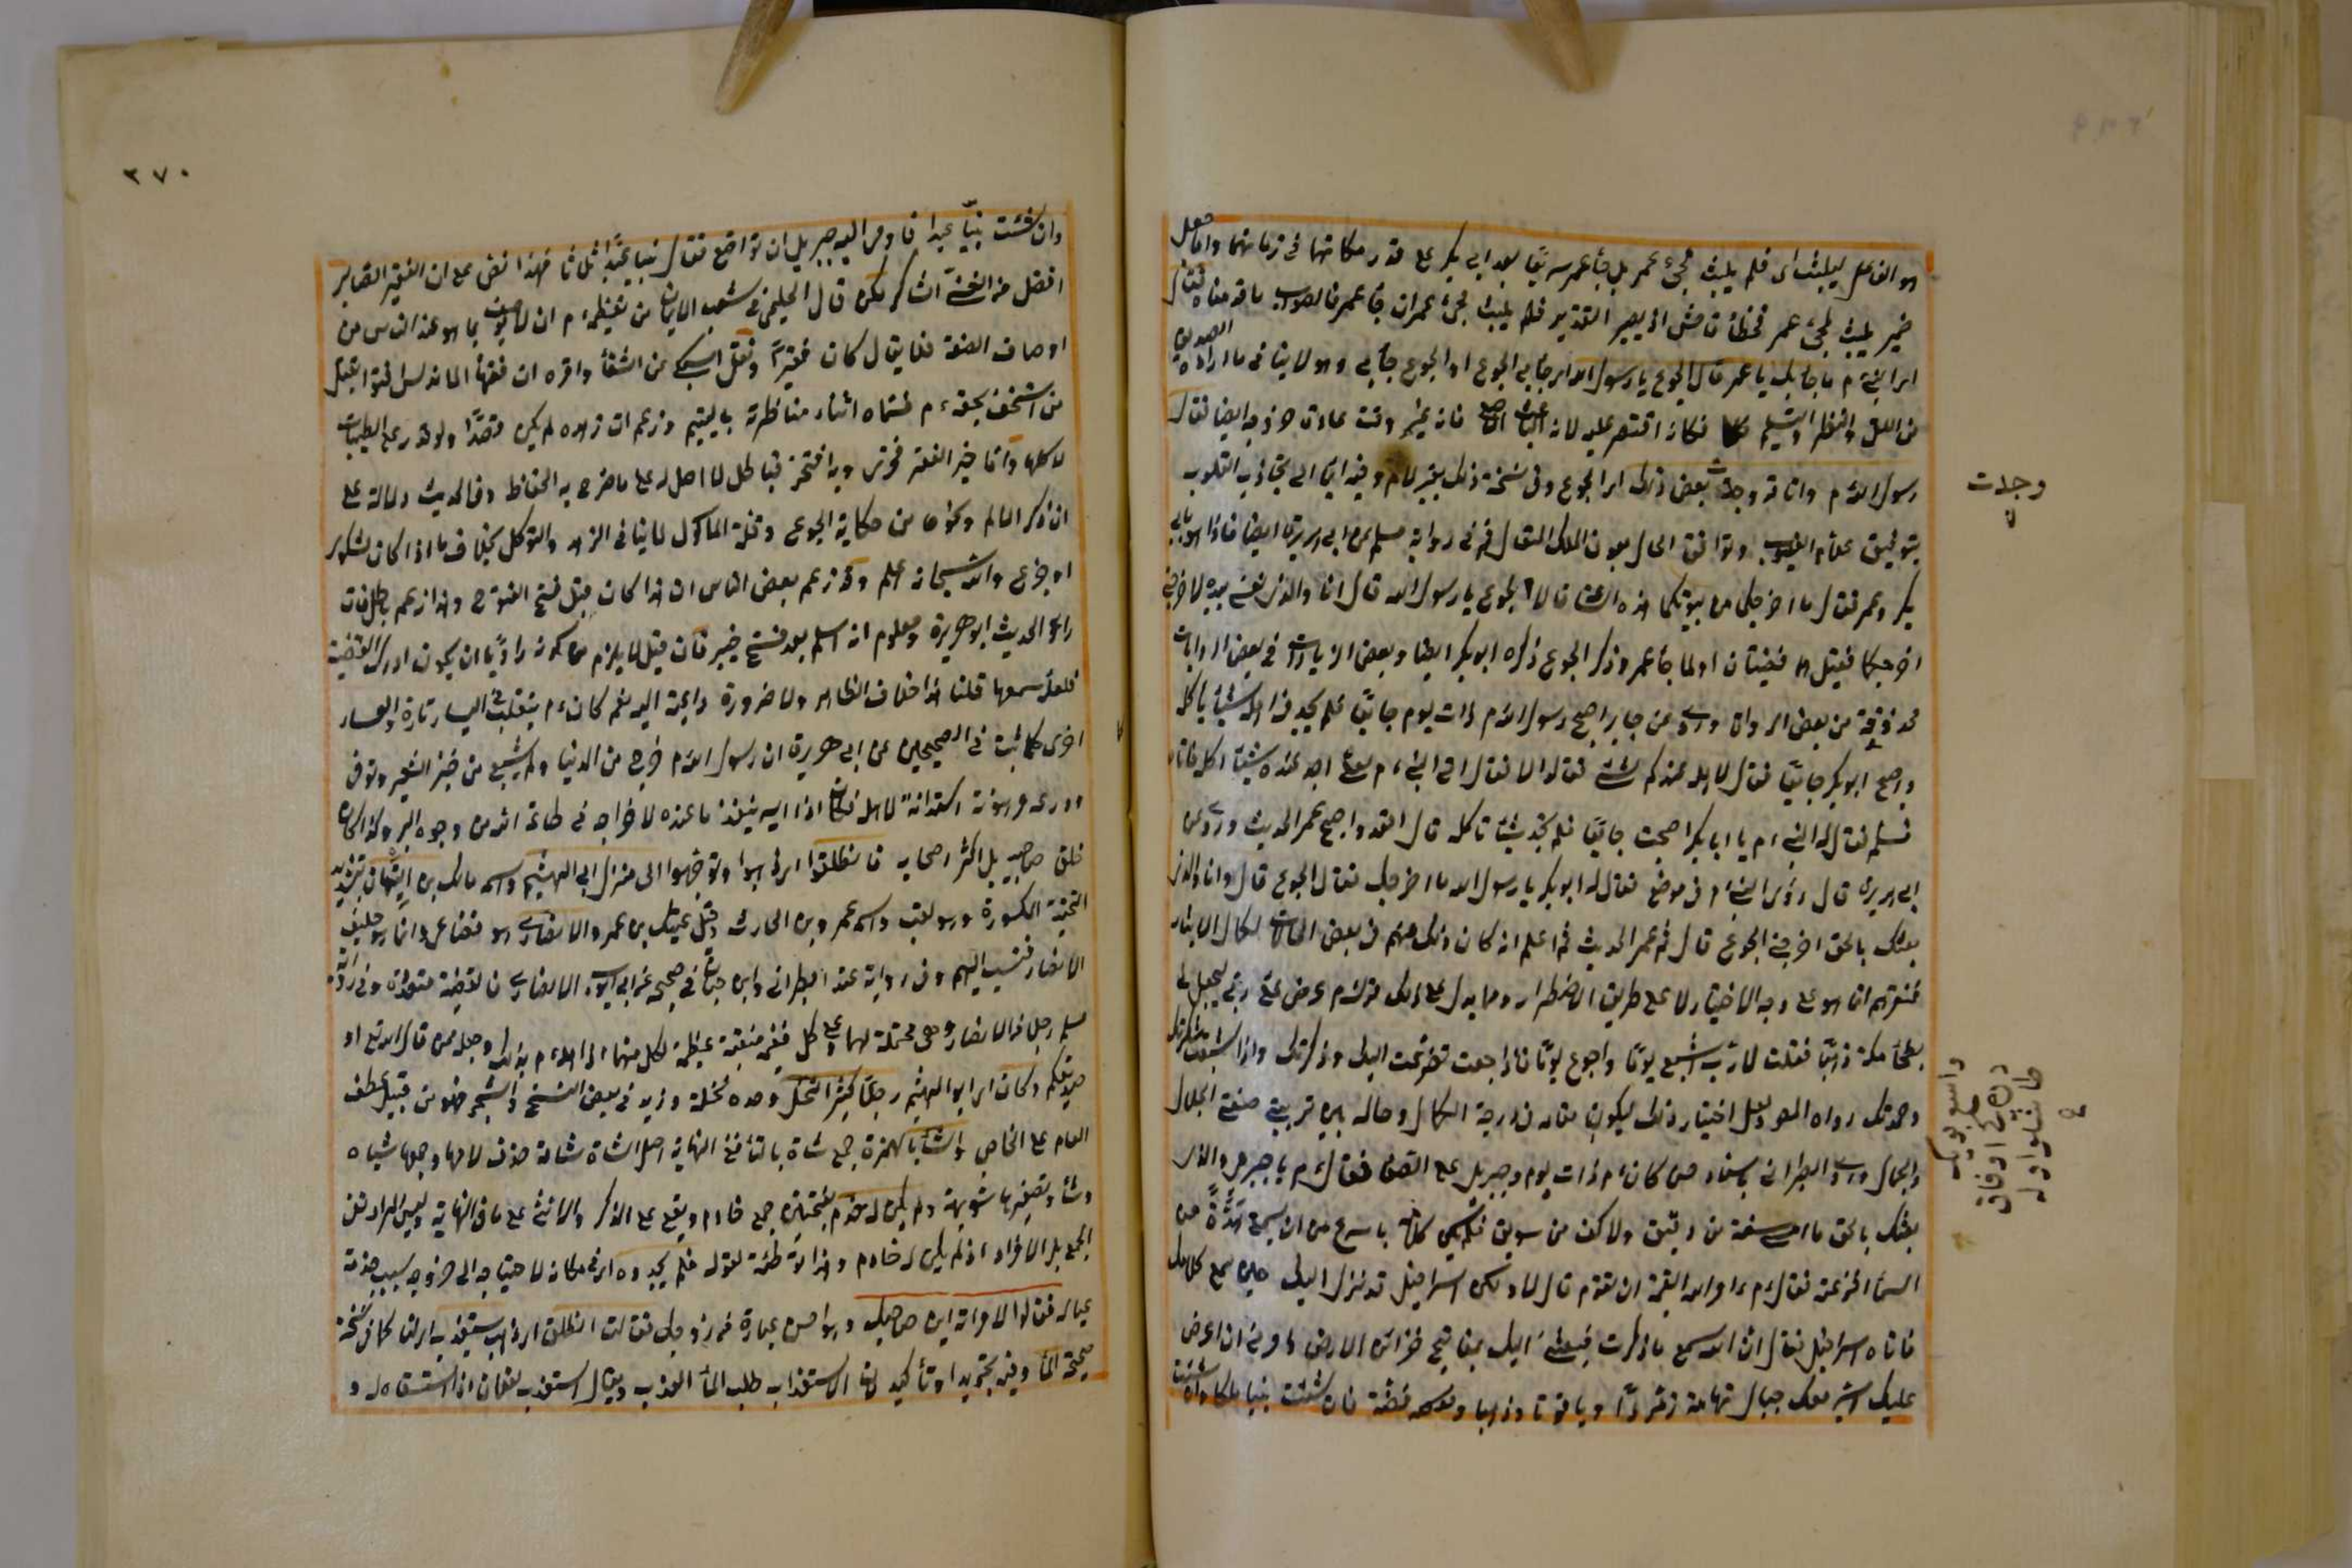 هو الفاعل ليلبث اى فلم يلبث مجئ عمر بل جأ عمر سريعا بعد ابى بكر على قدر مكانتهما فى زمانهما واما جعل
ضمير يلبث لمجئ عمر فخطأ فاحش اذ يصير التقدير فلم يلبث مجئ عمر ان جأ عمر فالصواب ما قدمناه فقال
اى النبى ما جأ بك يا عمر قال الجوع يا رسول الله اى جأ بى الجوع او الجوع جأ بى وهو لا ينافى ما اراده الصديق
من اللقى والنظر والتسليم فكانه اقتصر عليه لانه الباعث فانه فى غير وقت عادة خروجه ايضا فقال
رسول الله م وانا قد وجدت بعض ذلك اى الجوع وفى نسخة ذلك بغير لام وفيه ايمأ الى تجاذب القلوب
بتوفيق علام الغيوب وتوافق الحال بعون الملك المتعال ثم فى رواية مسلم عن ابى هريرة ايضا فاذا هو بابى
بكر وعمر فقال ما اخرجكما من بيوتكما هذه الساعة قالا الجوع يا رسول الله قال انا والذى نفسى بيده لاخرجنى
اخرجكما فقيل هما قضيتان اولما جأ عمر وذكر الجوع ذكره ابو بكر ايضا وبعض الزيادات فى بعض الروايات
محذوفة من بعض الرواة وروى عن جابر اصبح رسول الله م ذات يوم جائعا فلم يجد فى اهله شيئا يأكله
واصبح ابو بكر جائعا فقال لاهله عندكم شئ فقالوا لا فقال اتى النبى م لعلى اجد عنده شيئا اكله فاتاه
فسلم فقال له النبى م يا ابا بكر اصبحت جائعا فلم تجد شيئا تأكله قال اقعد واصبح عمر الحديث وروى عن
ابى هريرة قال رؤى النبى م فى موضع فقال له ابو بكر يا رسول الله ما اخرجك فقال الجوع قال وانا والذى
بعثك بالحق اخرجنى الجوع قال ثم عمر الحديث ثم اعلم انه كان ذلك منهم فى بعض الحالات لكمال الايثار
ففقرهم انما هو على وجه الاختيار لا على طريق الاضطرار ومما يدل على ذلك قوله م عرض على ربى ليجعل لى
بطحأ مكة ذهبا فقلت لا يا رب اشبع يوما واجوع يوما فاذا جعت تضرعت اليك وذكرتك واذا شبعت شكرتك
وحمدتك رواه احمد ولعل اختيار ذلك ليكون مقامه فى درجة الكمال وحاله بين تربيتى صفتى الجلال
والجمال وروى الطبرانى باسناد حسن كان م ذات يوم وجبريل على الصفا فقال م يا جبريل والذى
بعثك بالحق ما امسى سفة من دقيق ولا كف من سويق فلم يكن كلامه باسرع من ان سمع هدّة من
السمأ افزعته فقال م امر الله القيمة ان تقوم قال لا ولكن اسرافيل قد نزل اليك حين سمع كلامك
فاتاه اسرافيل فقال ان الله سمع ما ذكرت فبعثنى اليك بمفاتيح خزائن الارض وامرنى ان اعرض
عليك اسير معك جبال تهامة زمردا وياقوتا وذهبا وفضة فان شئت نبيا ملكا وان شئت
وجدت
وان شئت نبيّا عبدا فاومى اليه جبريل ان تواضع فقال نبيا عبدا ثلاثا فهذا نص على ان الفقير الصابر
افضل من الغنى الشاكر لكن قال الحليمى فى شعب الايمان من تعظيمه م ان لا يوصف بما هو عند الناس من
اوصاف الضعة فلا يقال كان فقيرا ونقل السبكى من الشفأ واقره ان فقهأ الاندلس افتوا بقتل
من استخف بحقه م فسماه اثناء مناظرته باليتيم وزعم ان زهده لم يكن قصدا ولو قدر على الطيبات
لاكلها واما خبر الفقر فخرى وبه افتخر فباطل لا اصل له على ما صرح به الحفاظ وفى الحديث دلالة على
ان ذكر الالم ونحوه من حكاية الجوع وقلة المأكول لا ينافى الزهد والتوكل بخلاف ما اذا كان لشكوى
او جزع والله سبحانه اعلم وقد زعم بعض الناس ان هذا كان قبل فتح الفتوح وهذا زعم باطل فان
راوى الحديث ابو هريرة ومعلوم انه اسلم بعد فتح خيبر فان قيل لا يلزم من كونه راويا ان يكون ادرك القضية
فلعله سمعها قلنا هذا خلاف الظاهر ولا ضرورة داعية اليه نعم كان م يتقلب فى اليسار تارة والعسار
اخرى كما ثبت فى الصحيحين عن ابى هريرة ان رسول الله م خرج من الدنيا ولم يشبع من خبز الشعير وتوفى
ودرعه مرهونة استدانه لاهله فكان اذا ايسر ينفذ ما عنده لاخراجه فى طاعة الله من وجوه البر وكذا كان
خلق صاحبيه بل اكثر اصحابه فانطلقوا اى ذهبوا وتوجهوا الى منزل ابى الهيثم واسمه مالك بن التيهان بتشديد
التحتية المكسورة وهو لقب واسمه عمرو بن الحارث وقيل عتيك بن عمرو الانصارى هو قضاعى وانما هو حليف
الانصار فنسب اليهم وفى رواية عند الطبرانى وابن حبان فى صحيحه عن ابى ايوب الانصارى فالقضية متعددة وفى رواية
مسلم رجل من الانصار وهى محتملة لهما وعلى كل ففيه منقبة عظيمة لكل منهما اذ اهله م بذلك وجعله ممن قال الله تع او
صديقكم وكان اى ابو الهيثم رجلا كثير النخل وحده نخلة وزيد فى بعض النسخ والشجر فهو من قبيل عطف
العام على الخاص والشأ بالهمزة جمع شاة بالتأ ففى النهاية اصل الشاة شاهة حذف لامها وجمعها شياه
وشأ وتصغيرها شويهة ولم يكن له خدم بفتحتين جمع خادم ويقع على الذكر والانثى على ما فى النهاية وليس المراد نفى
الجمع بل الافراد اذ لم يكن له خادم وهذا توطئة لقوله فلم يجدوه اى فى مكانه لاحتياجه الى خروجه بسبب خدمة
عياله فقالوا لامرأته اين صاحبك وهو احسن عبارة من زوجك فقالت انطلق اى ذهب يستعذب اى لنا كما فى نسخة
صحيحة المأ وفيه تجريد او تأكيد لان الاستعذاب طلب المأ العذب ويقال استعذب لفلان اذا استسقاه له و
٣٧٠